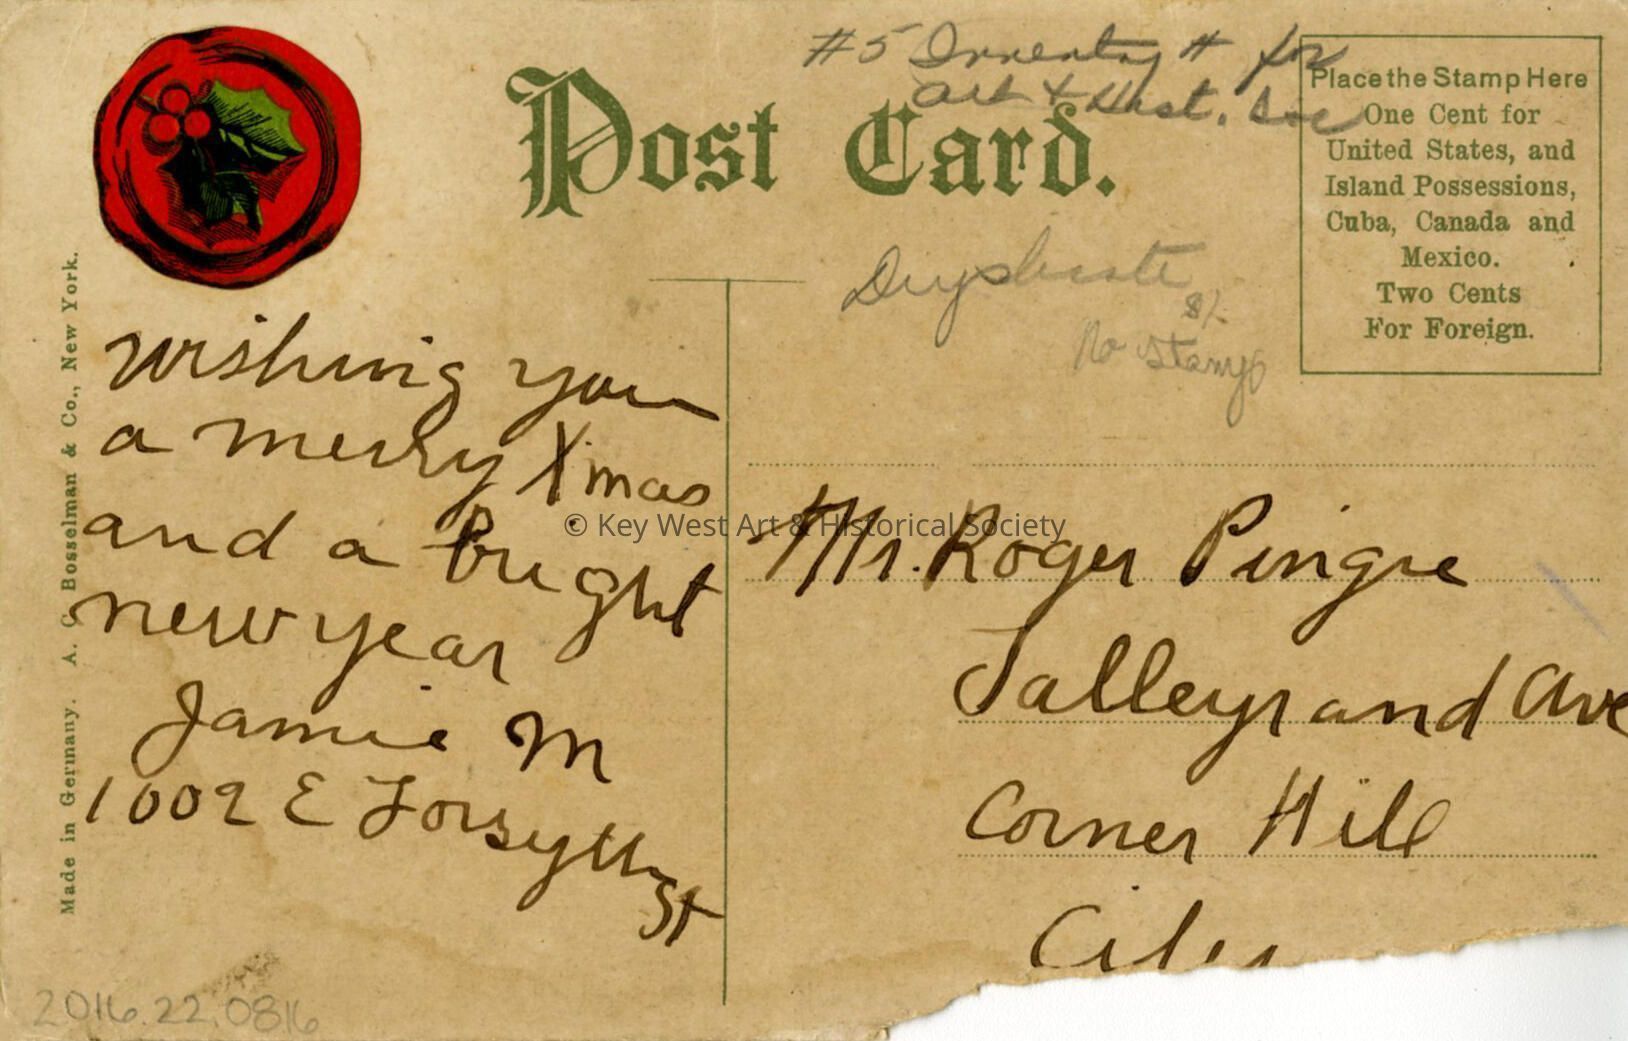 #5 Inventory # for
Art & Hist. Soc
Post Card.
Place the Stamp Here
One Cent for
United States, and
Island Possessions,
Cuba, Canada and
Mexico.
Two Cents
For Foreign.
Duplicate
No Stamp
Made in Germany. A. C. Bosselman & Co., New York.
Wishing you
a merry Xmas
and a bright
new year
Jamie M
1002 E Forsyth
St
© Key West Art & Historical Society
Mr. Roger Pingre
Talleyrand Ave
Corner Hill
City
2016.22.0816